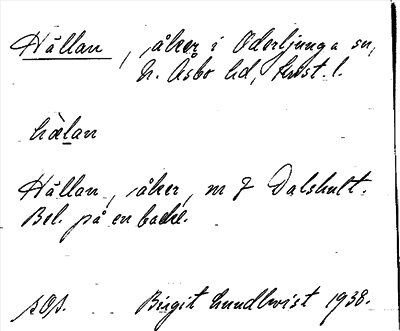 Hållan, åker i Oderljunga sn,
N. Åsbo hd, Krist. l.
hælan
Hållan, åker, m 7 Dalshult.
Bel. på en backe.
Birgit Lundkvist 1938.